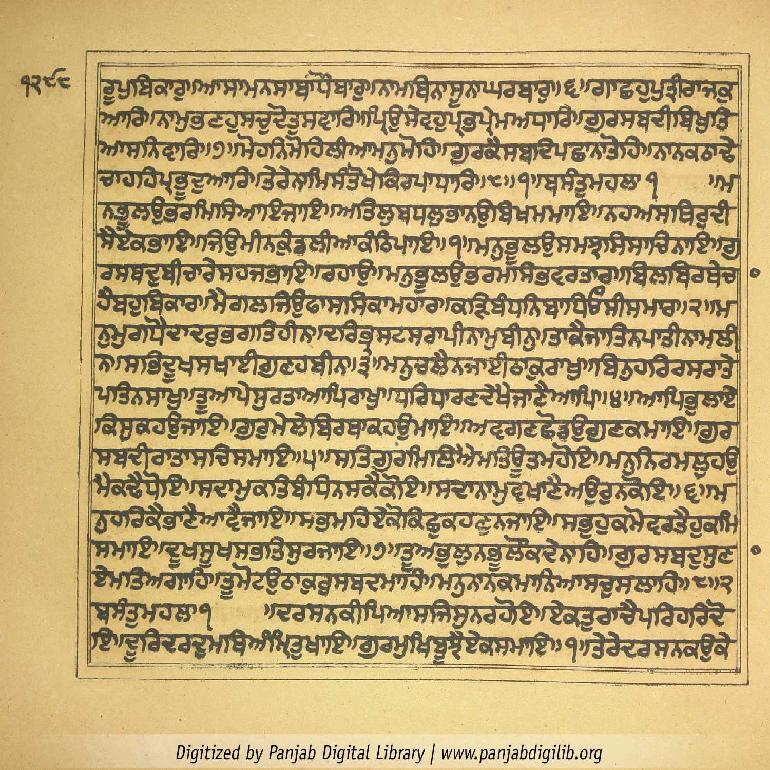 ੧੨੯੮
ਰੂਪੁਬਿਕਾਰੁ॥ਆਸਾਮਨਸਾਬਾਂਧੋਬਾਰੁ॥ਨਾਮਬਿਨਾਸੂਨਾਘਰਬਾਰੁ॥੬॥ਗਾਛਹੁਪੁਤ੍ਰੀਰਾਜਕੁ
ਆਰਿ॥ਨਾਮੁਭਣਹੁਸਚੁਦੋਤੁਸਵਾਰਿ॥ਪ੍ਰਿਉਸੇਵਹੁਪ੍ਰਭਪ੍ਰੇਮਅਧਾਰਿ॥ਗੁਰਸਬਦੀਬਿਖੁਤਿ
ਆਸਨਿਵਾਰਿ॥੭॥ਮੋਹਨਿਮੋਹਿਲੀਆਮਨੁਮੋਹਿ॥ਗੁਰਕੈਸਬਦਿਪਛਾਨਾਤੋਹਿ॥ਨਾਨਕਠਾਢੇ
ਚਾਹਹਿਪ੍ਰਭੂਦੁਆਰਿ॥ਤੇਰੇਨਾਮਿਸੰਤੋਖੇਕਿਰਪਾਧਾਰਿ॥੮॥੧॥ਬਸੰਤੁਮਹਲਾ ੧ ॥ਮ
ਨੁਭੂਲਉਭਰਮਸਿਆਇਜਾਇ॥ਅਤਿਲੁਬਧਲੁਭਾਨਉਬਿਖਮਮਾਇ॥ਨਹਅਸਥਿਰੁਦੀ
ਸੈਏਕਭਾਇ॥ਜਿਉਮੀਨਕੁੰਡਲੀਆਕੰਠਿਪਾਇ॥੧॥ਮਨੁਭੂਲਉਸਮਝਸਿਸਾਚਿਨਾਇ॥ਗੁ
ਰਸਬਦੁਬੀਚਾਰੇਸਹਜਭਾਇ॥ਰਹਾਉ॥ਮਨੁਭੂਲਉਭਰਮਸਿਭਵਰਤਾਰ॥ਬਿਲਬਿਰਥੇਚ
ਹੈਬਹੁਬਿਕਾਰ॥ਮੈਗਲਜਿਉਫਾਸਸਿਕਾਮਹਾਰ॥ਕੜਿਬੰਧਨਿਬਾਧਿਓਸੀਸਮਾਰ॥੨॥ਮ
ਨੁਮੁਗਧੌਦਾਦਰੁਭਗਤਿਹੀਨ॥ਦਰਿਭ੍ਰਸਟਸਰਾਪੀਨਾਮੁਬੀਨੁ॥ਤਾਕੈਜਾਤਿਨਪਾਤੀਨਾਮਲੀ
ਨ॥ਸਭਿਦੂਖਸਖਾਈਗੁਣਹਬੀਨ॥੩॥ਮਨੁਚਲੈਨਜਾਈਠਾਕਿਰਾਖੁ॥ਬਿਨੁਹਰਿਰਸਰਾਤੇ
ਪਤਿਨਸਾਖੁ॥ਤੂਆਪੇਸੁਰਤਾਆਪਿਰਾਖੁ॥ਧਰਿਧਾਰਣਦੇਖੈਜਾਣੈਆਪਿ॥੪॥ਆਪਿਭੁਲਾਏ
ਕਿਸੁਕਹਉਜਾਇ॥ਗੁਰੁਮੇਲੇਬਿਰਥਾਕਹਉਮਾਇ॥ਅਵਗਣਛੋਡਉਗੁਣਕਮਾਇ॥ਗੁਰ
ਸਬਦੀਰਾਤਾਸਚਿਸਮਾਇ॥੫॥ਸਤਿਗੁਰਮਿਲਿਐਮਤਿਊਤਮਹੋਇ॥ਮਨੁਨਿਰਮਲੁਹਉ
ਮੈਕਢੈਧੋਇ॥ਸਦਾਮੁਕਤਿਬੰਧਿਨਸਕੈਕੋਇ॥ਸਦਾਨਾਮੁਵਖਾਣੈਅਉਰੁਨਕੋਇ॥੬॥ਮ
ਨੁਹਰਿਕੈਭਾਣੈਆਵੈਜਾਇ॥ਸਭਮਹਿਏਕੋਕਿਛੁਕਹਣੁਨਜਾਇ॥ਸਭੁਹੁਕਮੋਵਰਤੈਹੁਕਮਿ
ਸਮਾਇ॥ਦੂਖਸੂਖਸਭਤਿਸੁਰਜਾਇ॥੭॥ਤੂਅਭੁਲੁਨਭੂਲੌਕਦੇਨਾਹਿ॥ਗੁਰਸਬਦੁਸੁਣ
ਏਮਤਿਅਗਾਹਿ॥ਤੂਮੋਟਉਠਾਕੁਰੁਸਬਦਮਾਹਿ॥ਮਨੁਨਾਨਕਮਾਨਿਆਸਚੁਸਲਾਹਿ॥੮॥੨
ਬਸੰਤੁਮਹਲਾ ੧ ॥ਦਰਸਨਕੀਪਿਆਸਜਿਸੁਨਰਹੋਇ॥ਏਕਤੁਰਾਚੈਪਰਿਹਰਿਦੋ
ਇ॥ਦੂਰਿਦਰਦੁਮਥਿਅੰਮ੍ਰਿਤੁਖਾਇ॥ਗੁਰਮੁਖਿਬੂਝੈਏਕਸਮਾਇ॥੧॥ਤੇਰੇਦਰਸਨਕਉਕੇ
Digitized by Panjab Digital Library | www.panjabdigilib.org